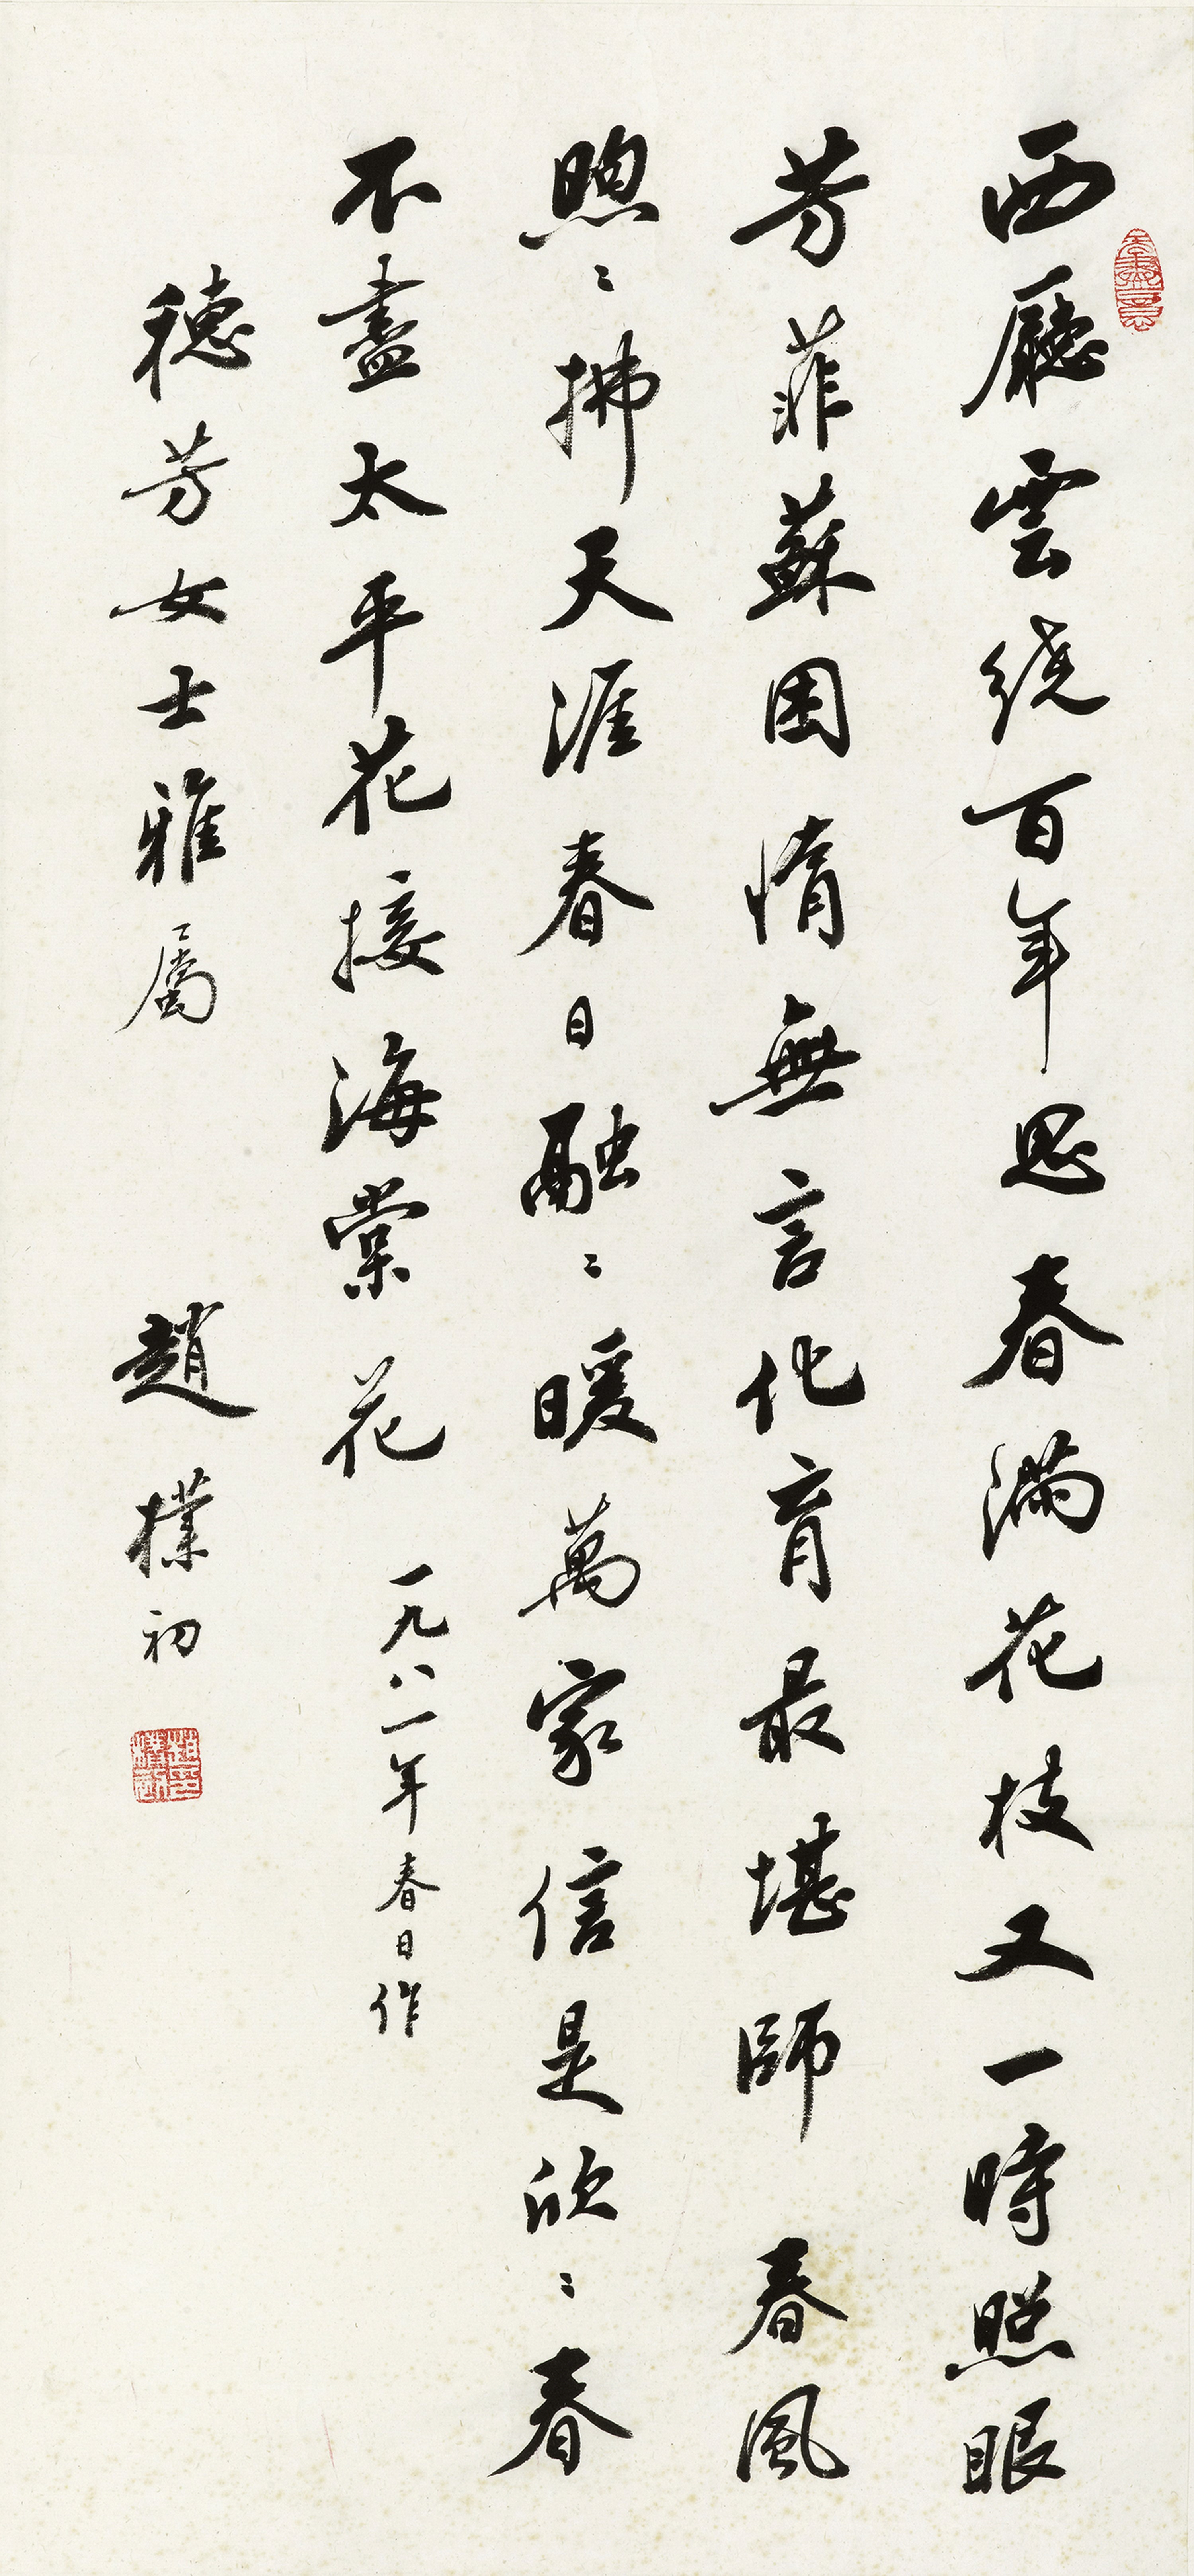 西廳雲繞百年思春滿花枝又一時照眼
芳菲蘇困惰無言化育最堪師 春風
煦〻拂天涯春日融〻暖萬家信是欣〻春
不盡太平花接海棠花 一九八一年春日作
穗芳女士雅屬 趙樸初
趙樸初印